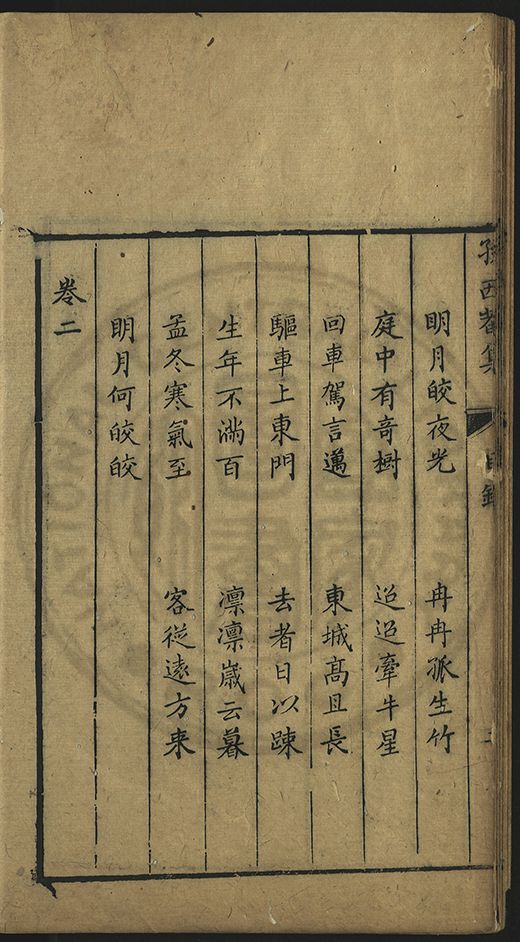 西巷集
明月皎夜光 冉冉孤生竹
庭中有奇樹 迢迢牽牛星
回車駕言邁 東城高且長
驅車上東門 去者日以踈
生年不滿百 凛凛歲云暮
孟冬寒氣至 客從遠方来
明月何皎皎
卷二